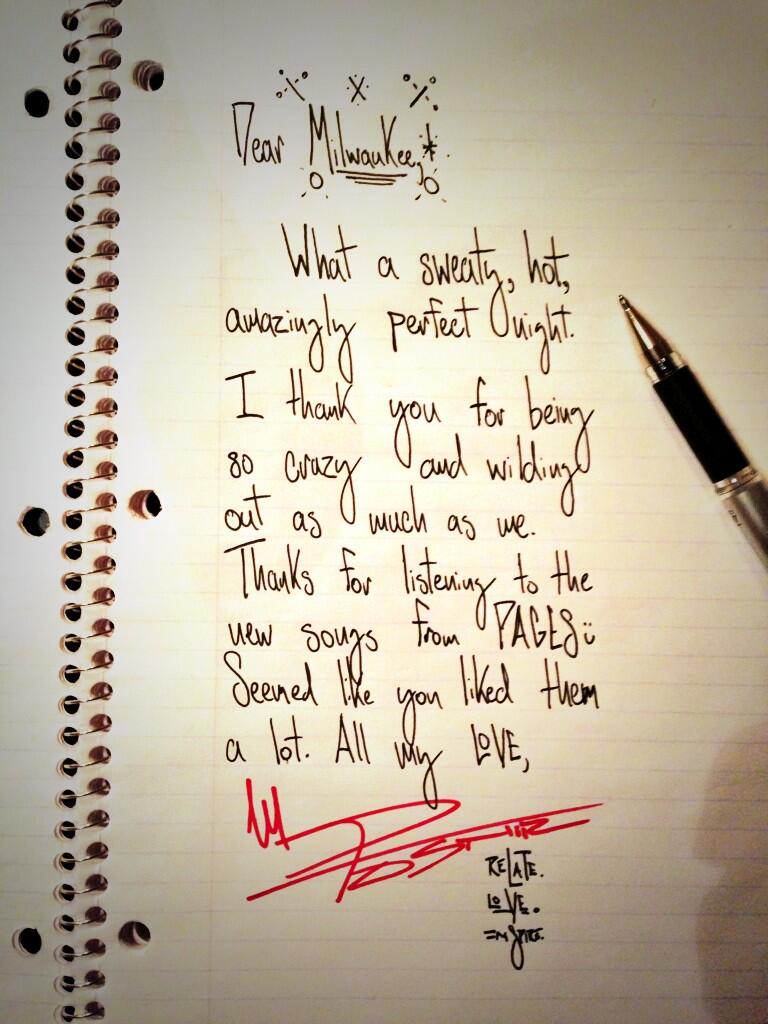 Dear Milwaukee,
What a sweaty, hot,
amazingly perfect night.
I thank you for being
so crazy and wilding
out as much as me.
Thanks for listening to the
new songs from PAGES ü
Seemed like you liked them
a lot. All my LOVE,
RELATE.
LOVE.